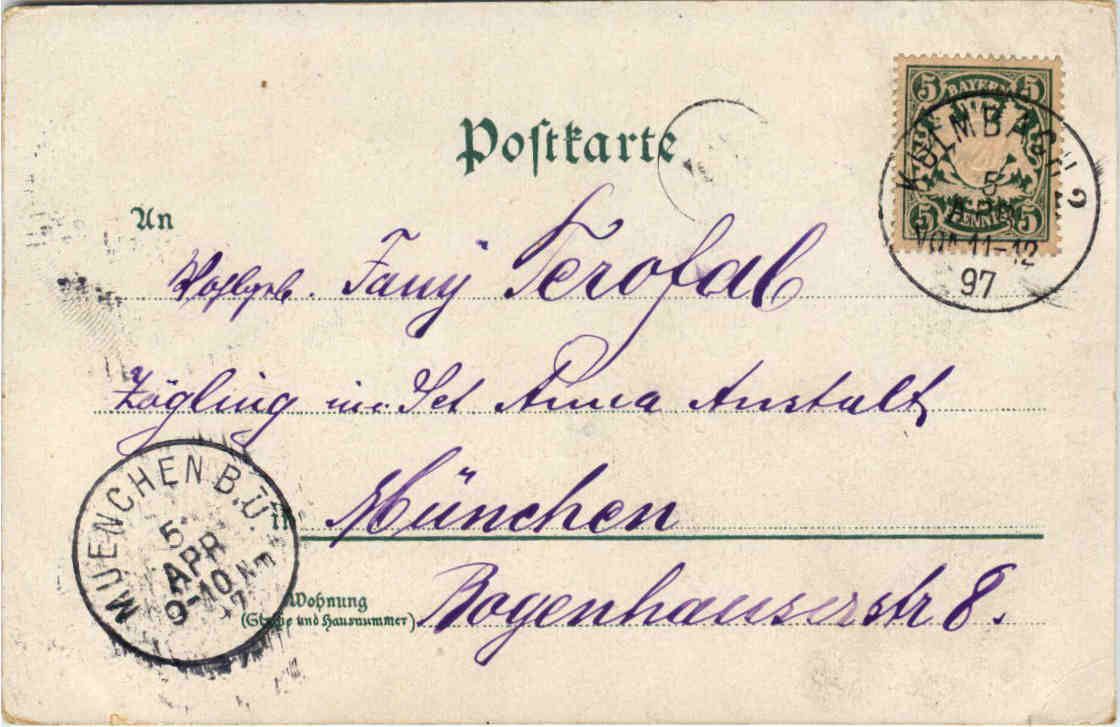 Postkarte
5 BAYERN 5
5 PFENNIG 5
KULMBACH 2
5
APR
Vorm 11-12
97
An
Wohlgeb. Fany Terofal
Zögling in Sct Anna Anstalt
in München
MUENCHEN B.Ü.
5
APR
9-10 Nm
97
Wohnung
(Straße und Hausnummer)
Bogenhauserstr 8.